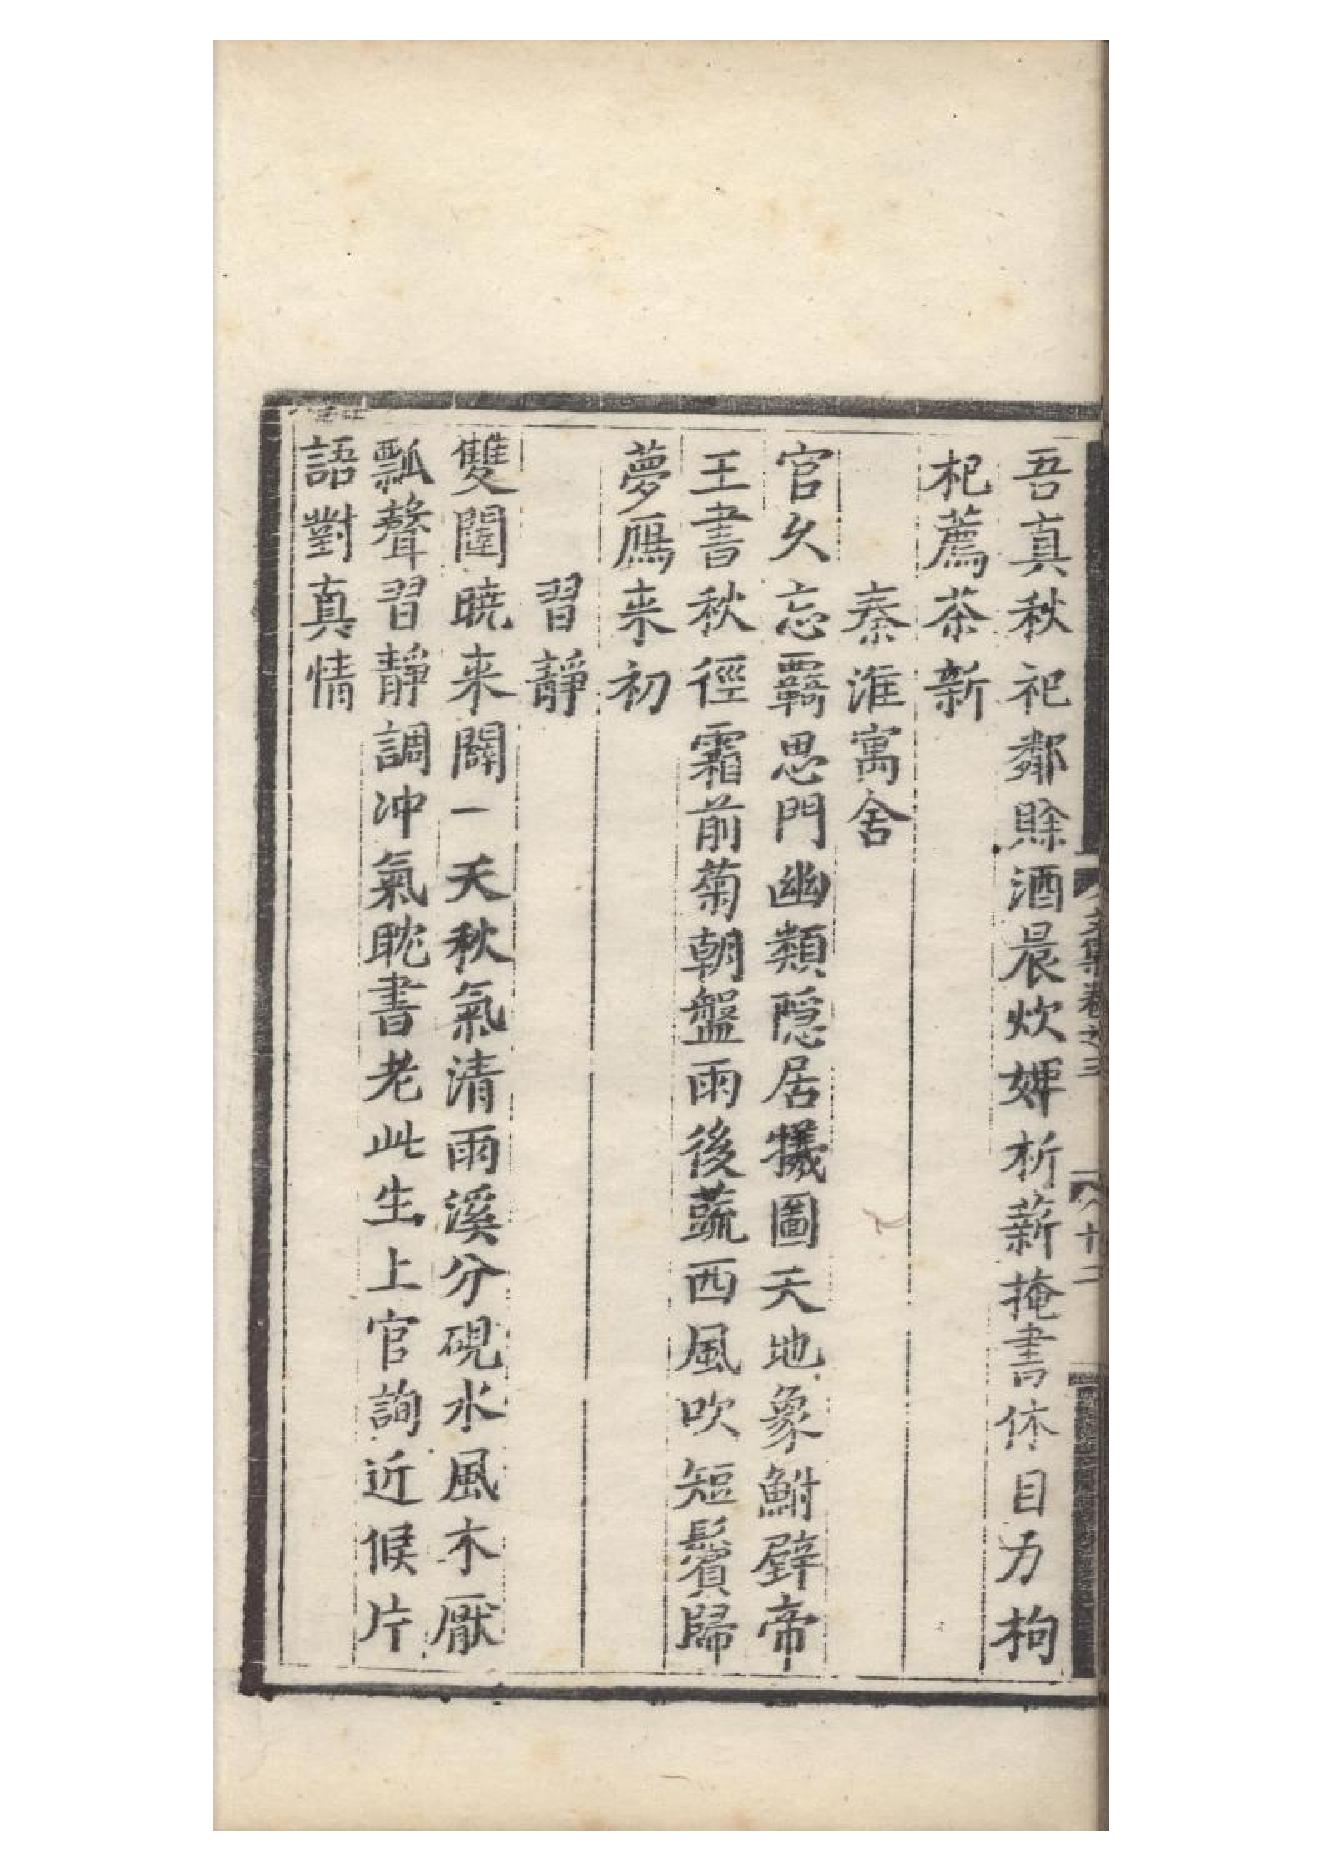 吾真秋祀鄰賒酒晨炊婢析薪掩書休目力枸
杞薦茶新
秦淮寓舍
官久忘羈思門幽類隠居犧圖天地象鮒壁帝
王書秋徑霜前菊朝盤雨後蔬西風吹短鬢歸
夢鴈来初
習靜
雙闔曉来闢一天秋氣清雨溪分硯水風木厭
瓢聲習靜調冲氣眈書老此生上官詢近候片
語對真情
集卷之三
十二